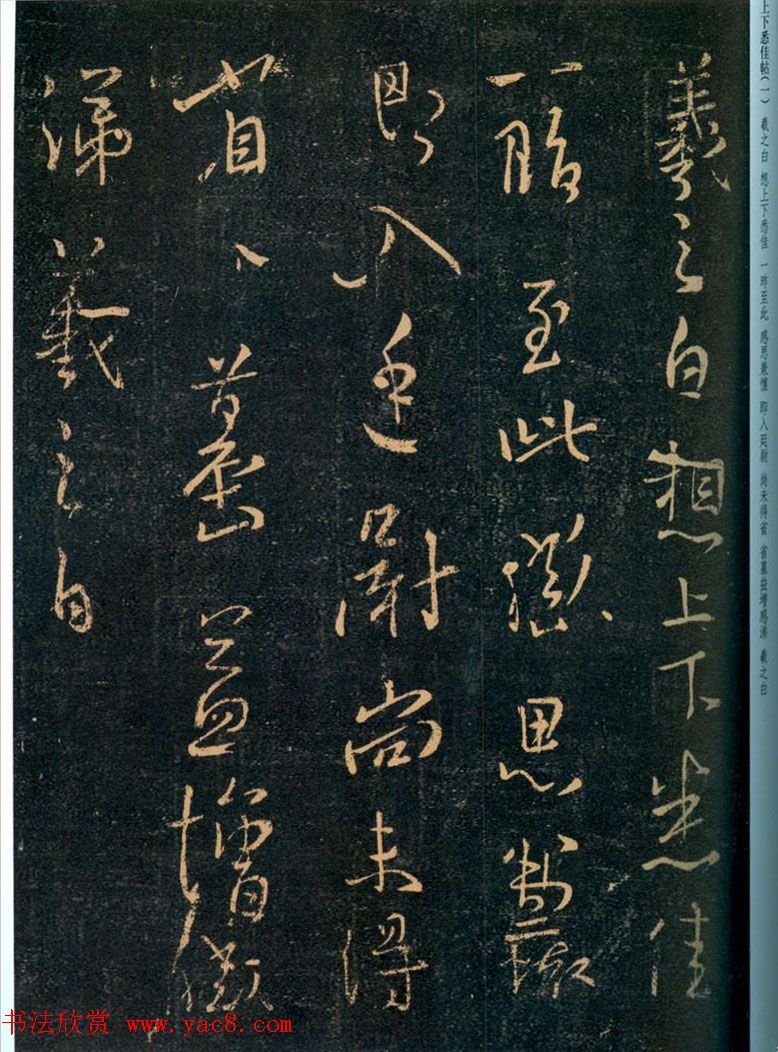 上下悉佳帖(一) 羲之白 想上下悉佳 一昨至此 感思 即入廷尉 尚未得省 省墓益增感涕 羲之白
羲之白想上下悉佳
一昨至此感思
即入廷尉尚未得
省〻墓益增感
涕羲之白
书法欣赏 www.yac8.com